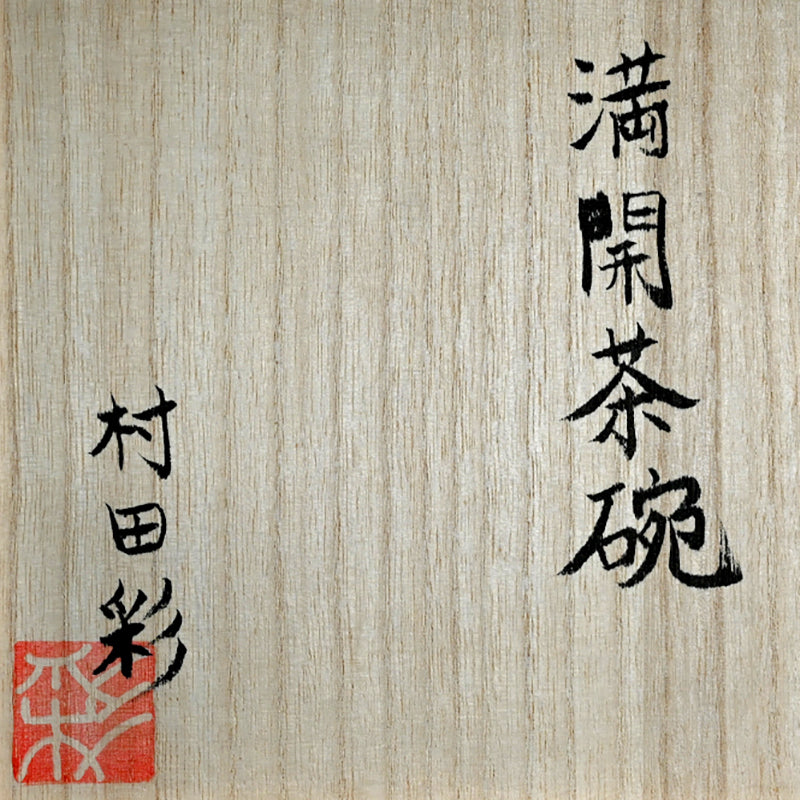 満開茶碗
村田彩
彩